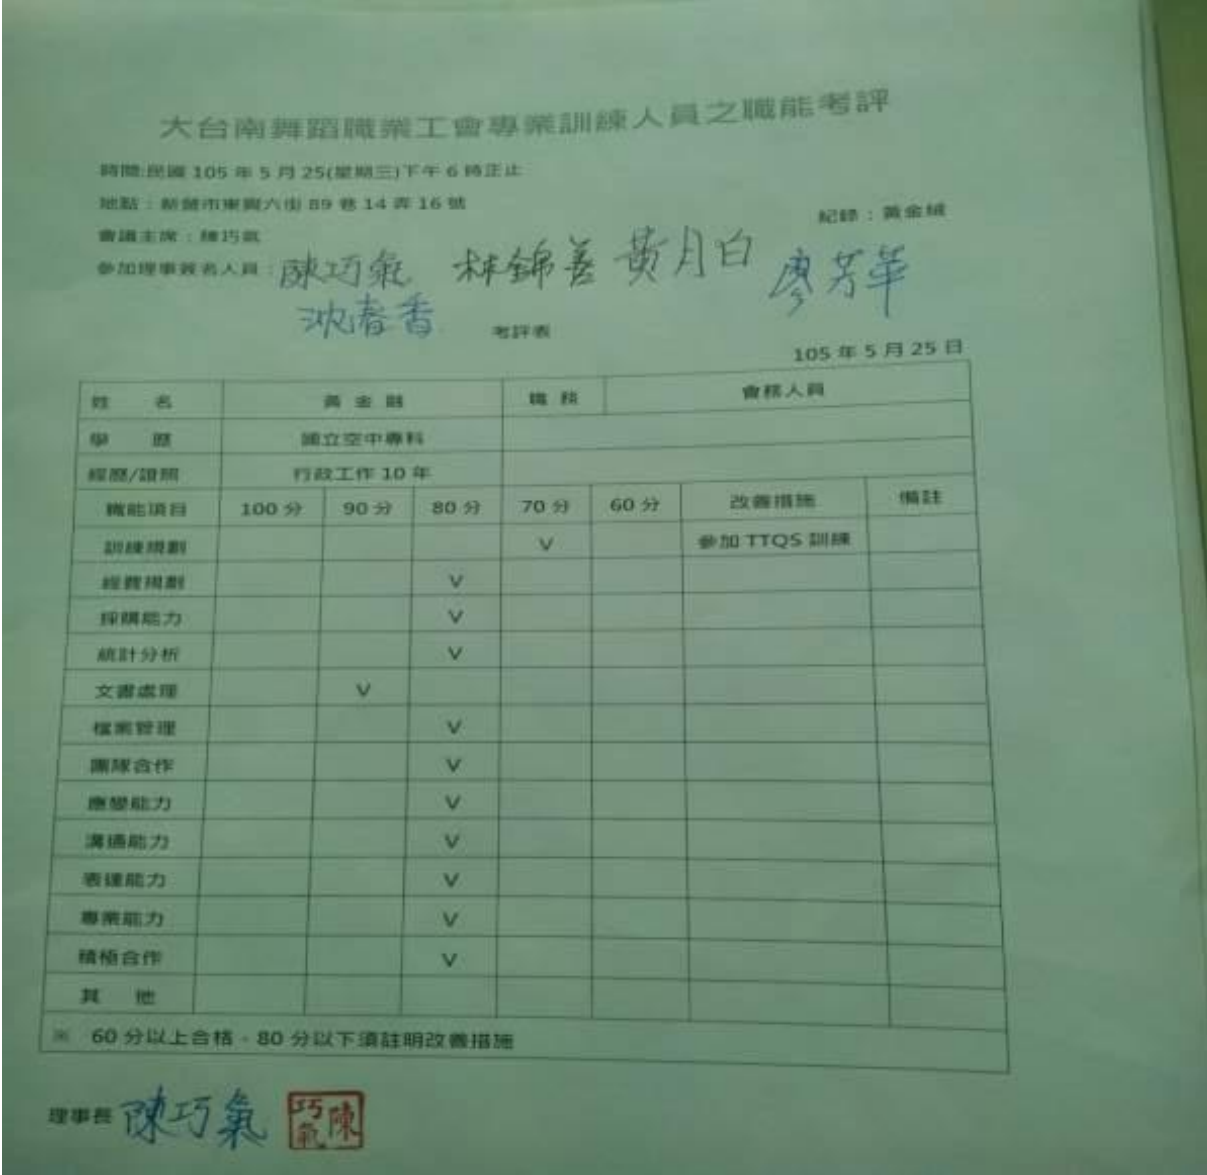 大台南舞蹈職業工會專業訓練人員之職能考評
時間:民國 105 年 5 月 25(星期三)下午 6 時正止
地點：新營市東興六街 89 巷 14 弄 16 號
紀錄：黃金絨
會議主席：陳巧氣
參加理事簽名人員：陳巧氣 林錦善 黃月白 廖芳華
沈春香
考評表
105 年 5 月 25 日
姓 名 黃 金 職 務 會務人員
學 歷 國立空中專科
經歷/證照 行政工作 10 年
職能項目 100 分 90 分 80 分 70 分 60 分 改善措施 備註
訓練規劃 V 參加 TTQS 訓練
經費規劃 V
採購能力 V
統計分析 V
文書處理 V
檔案管理 V
團隊合作 V
應變能力 V
溝通能力 V
表達能力 V
專業能力 V
積極合作 V
其 他
※ 60 分以上合格，80 分以下須註明改善措施
理事長 陳巧氣 陳巧氣